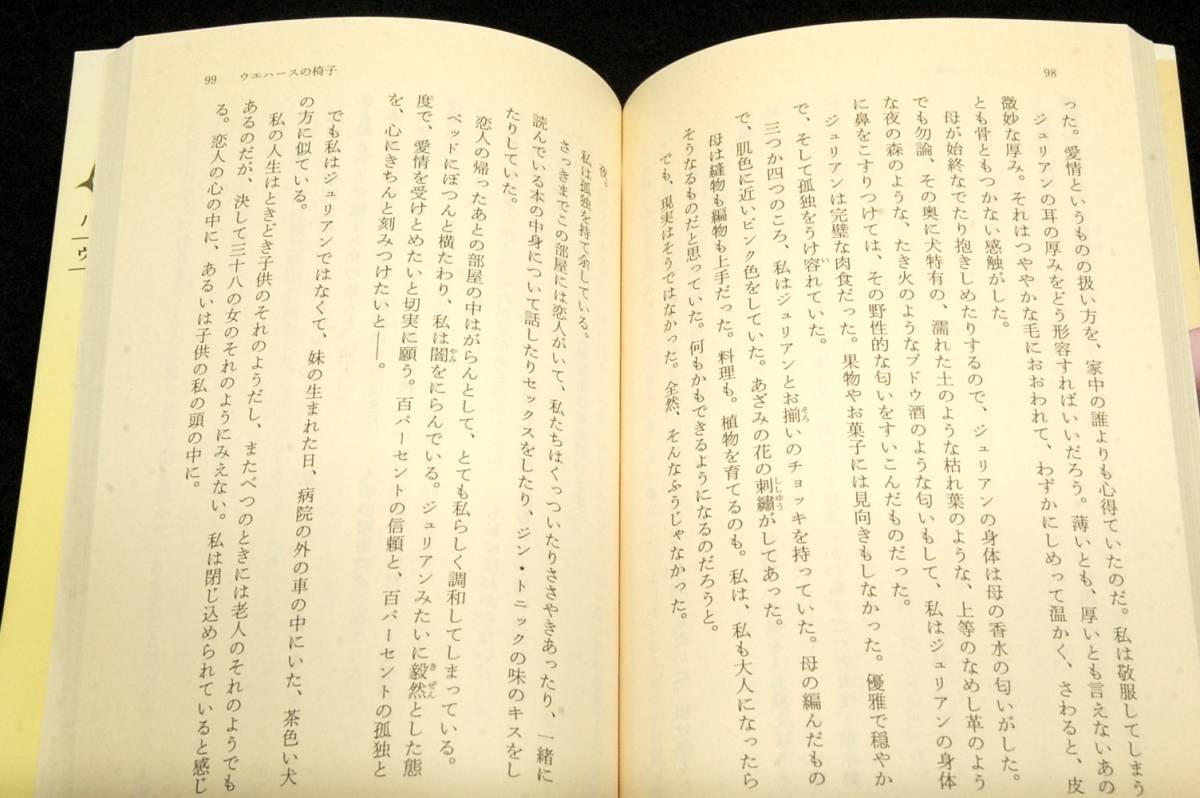 98
った。愛情というものの扱い方を、家中の誰よりも心得ていたのだ。私は敬服してしまう
ジュリアンの耳の厚みをどう形容すればいいだろう。薄いとも、厚いとも言えないあの
微妙な厚み。それはつややかな毛におおわれて、わずかにしめって温かく、さわると、皮
とも骨ともつかない感触がした。
母が始終なでたり抱きしめたりするので、ジュリアンの身体は母の香水の匂いがした。
でも勿論、その奥に犬特有の、濡れた土のような枯れ葉のような、上等のなめし革のよう
な夜の森のような、たき火のようなブドウ酒のような匂いもして、私はジュリアンの身体
に鼻をこすりつけては、その野性的な匂いをすいこんだものだった。
ジュリアンは完璧な肉食だった。果物やお菓子には見向きもしなかった。優雅で穏やか
で、そして孤独をうけ容れていた。
三つか四つのころ、私はジュリアンとお揃いのチョッキを持っていた。母の編んだもの
で、肌色に近いピンク色をしていた。あざみの花の刺繡がしてあった。
母は縫物も編物も上手だった。料理も。植物を育てるのも。私は、私も大人になったら
そうなるものだと思っていた。何もかもできるようになるのだろうと。
でも、現実はそうではなかった。全然、そんなふうじゃなかった。
99 ウエハースの椅子
夜。
私は孤独を持て余している。
さっきまでこの部屋には恋人がいて、私たちはくっついたりささやきあったり、一緒に
読んでいる本の中身について話したりセックスをしたり、ジン・トニックの味のキスをし
たりしていた。
恋人の帰ったあとの部屋の中はがらんとして、とても私らしく調和してしまっている。
ベッドにぽつんと横たわり、私は闇をにらんでいる。ジュリアンみたいに毅然とした態
度で、愛情を受けとめたいと切実に願う。百パーセントの信頼と、百パーセントの孤独と
を、心にきちんと刻みつけたいと――。
でも私はジュリアンではなくて、妹の生まれた日、病院の外の車の中にいた、茶色い犬
の方に似ている。
私の人生はときどき子供のそれのようだし、またべつのときには老人のそれのようでも
あるのだが、決して三十八の女のそれのようにみえない。私は閉じ込められていると感じ
る。恋人の心の中に、あるいは子供の私の頭の中に。